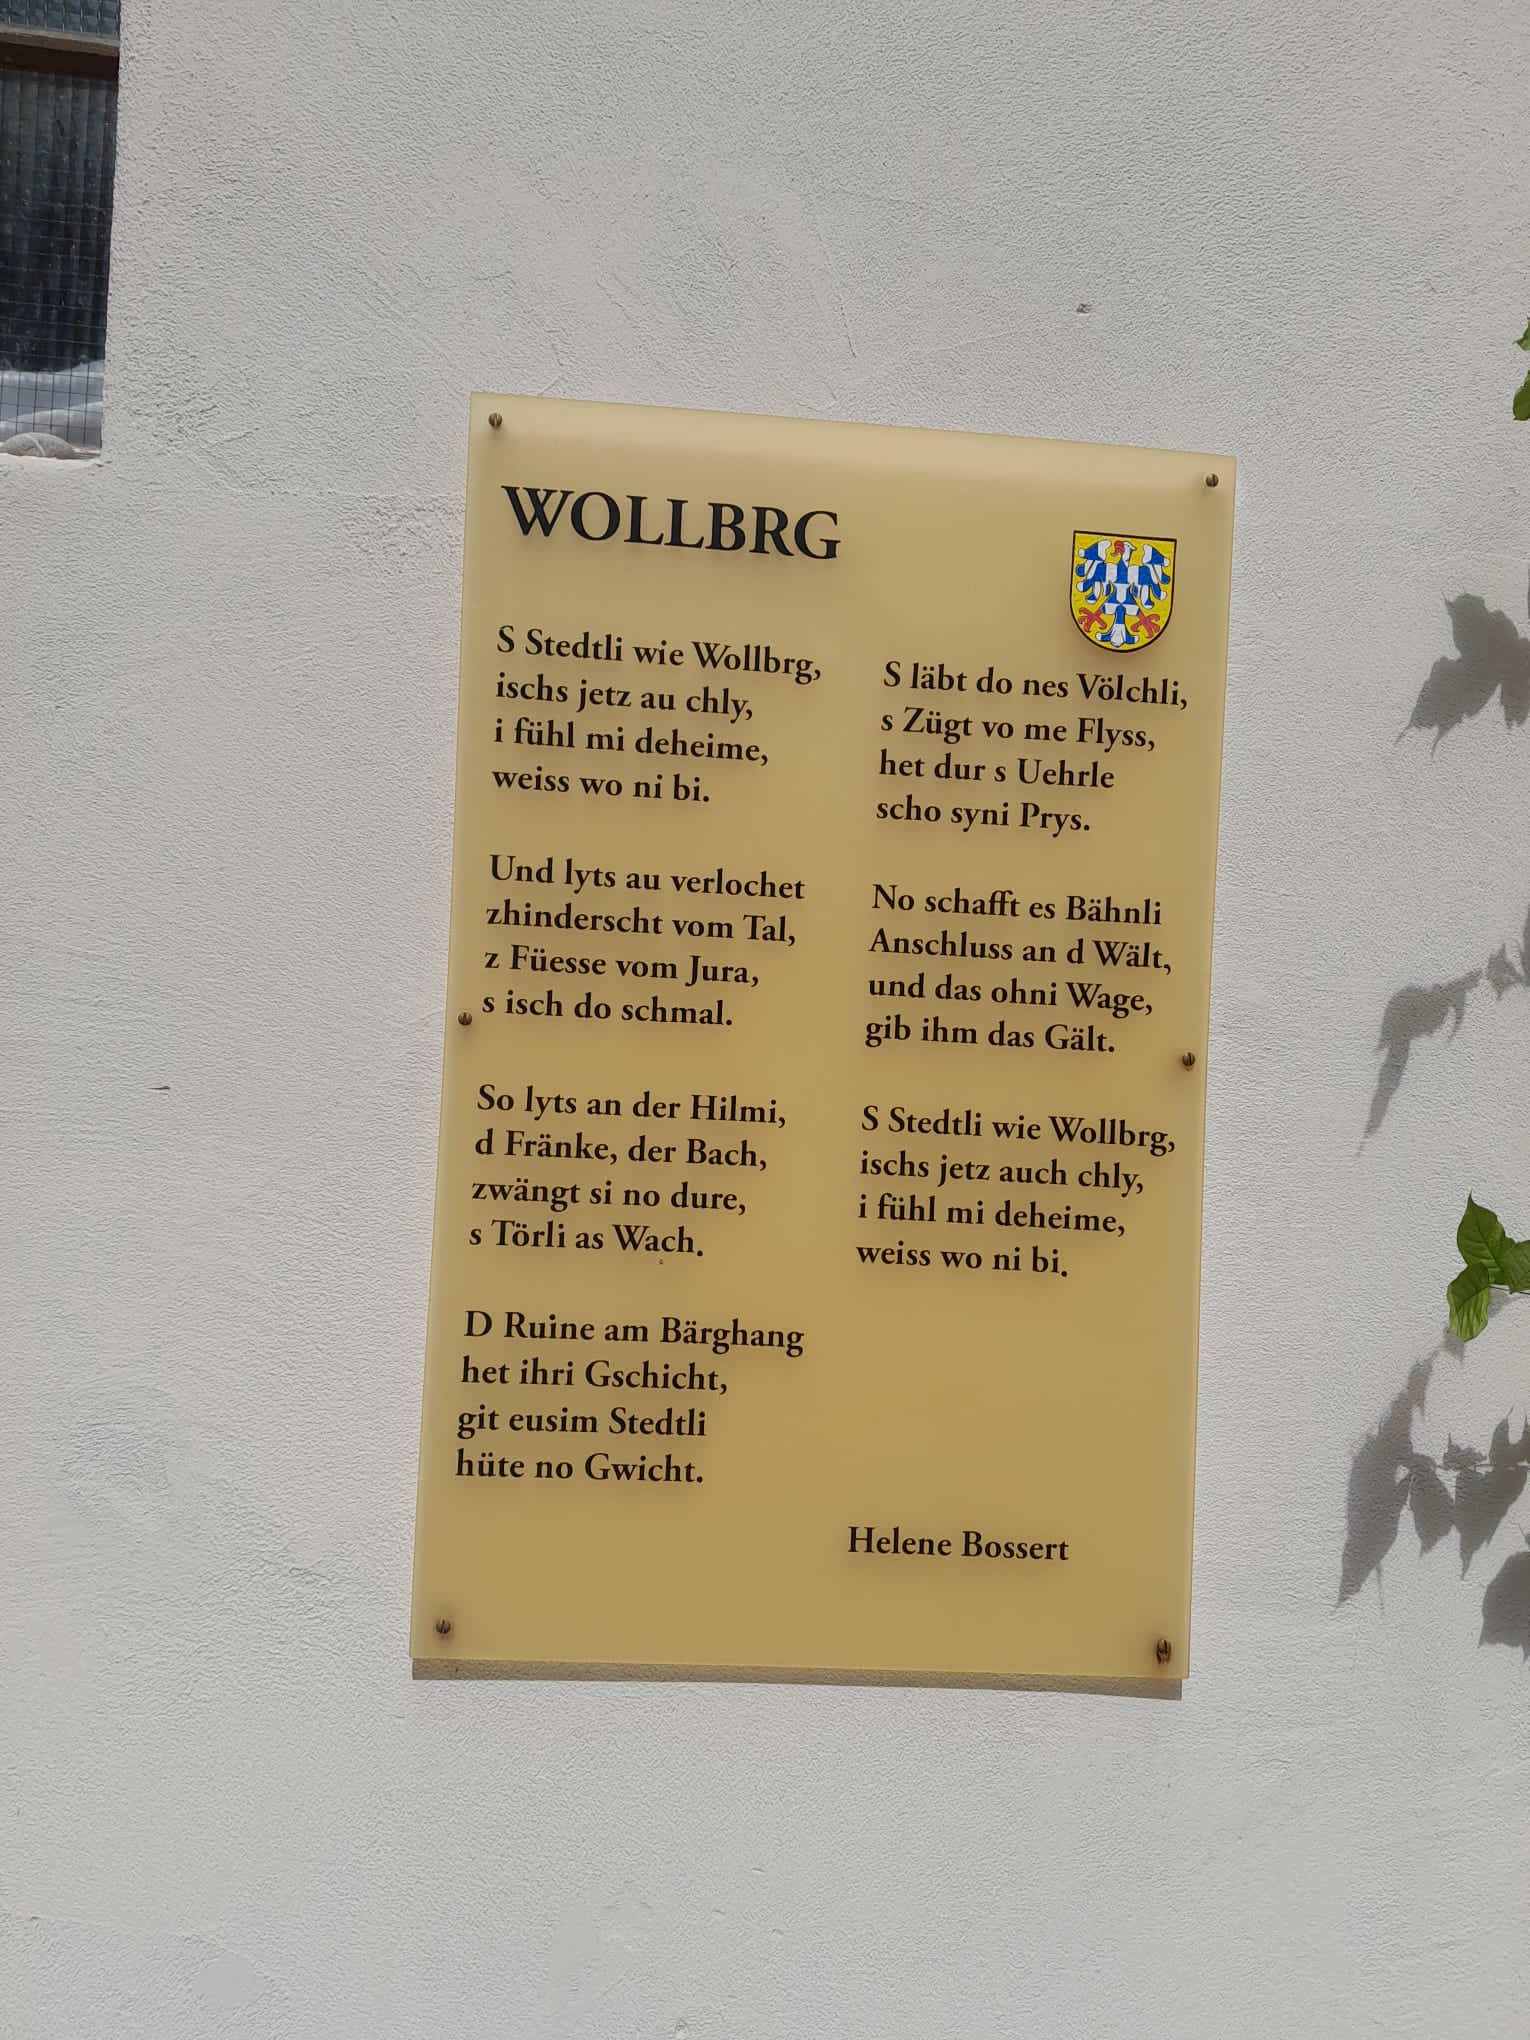 WOLLBRG
S Stedtli wie Wollbrg,
ischs jetz au chly,
i fühl mi deheime,
weiss wo ni bi.
Und lyts au verlochet
zhinderscht vom Tal,
z Füesse vom Jura,
s isch do schmal.
So lyts an der Hilmi,
d Fränke, der Bach,
zwängt si no dure,
s Törli as Wach.
D Ruine am Bärghang
het ihri Gschicht,
git eusim Stedtli
hüte no Gwicht.
S läbt do nes Völchli,
s Zügt vo me Flyss,
het dur s Uehrle
scho syni Prys.
No schafft es Bähnli
Anschluss an d Wält,
und das ohni Wage,
gib ihm das Gält.
S Stedtli wie Wollbrg,
ischs jetz auch chly,
i fühl mi deheime,
weiss wo ni bi.
Helene Bossert